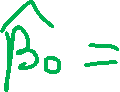 β̂₀ =